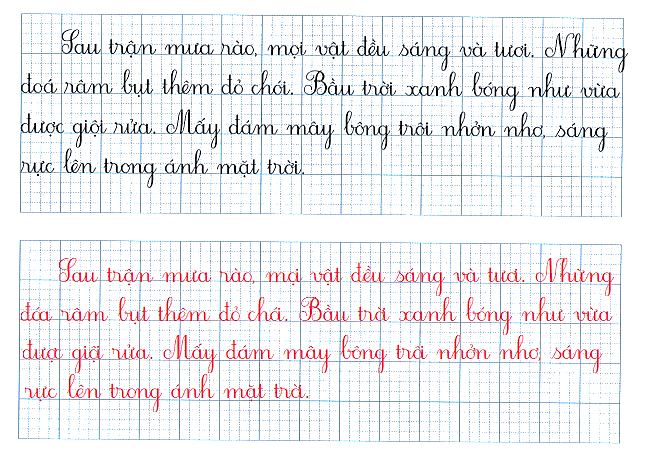 Sau trận mưa rào, mọi vật đều sáng và tươi. Những
đoá râm bụt thêm đỏ chói. Bầu trời xanh bóng như vừa
được giội rửa. Mấy đám mây bông trôi nhởn nhơ, sáng
rực lên trong ánh mặt trời.
Sau trận mưa rào, mọi vật đều sáng và tươi. Những
đoá râm bụt thêm đỏ chói. Bầu trời xanh bóng như vừa
được giội rửa. Mấy đám mây bông trôi nhởn nhơ, sáng
rực lên trong ánh mặt trời.